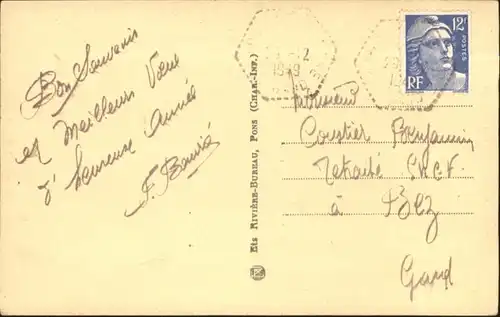 Bon Souvenir
et Meilleurs Vœux
d'heureuse Année
Ets Rivière-Bureau, Pons (Char.-Inf.)
12F
POSTES
RF
Monsieur
Benjamin
Retraité S.N.C.F.
à Bez
Gard